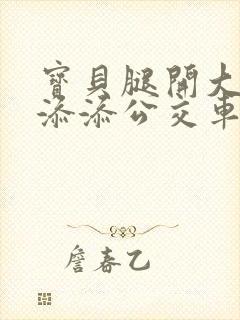 寶貝腿開大
添添公交車
詹春乙